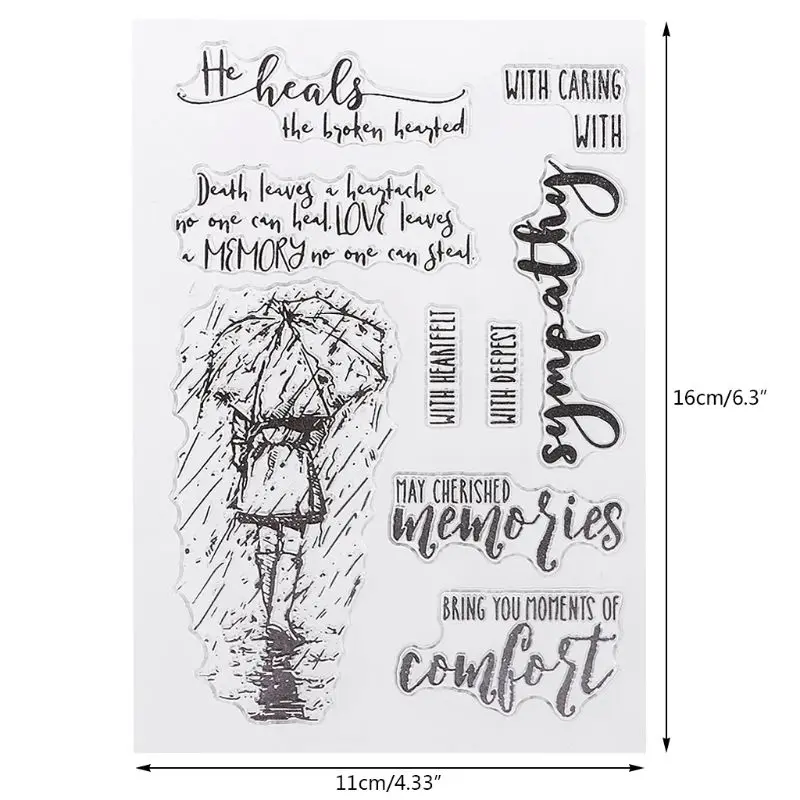 He heals
the broken hearted
Death leaves a heartache
no one can heal. LOVE leaves
a MEMORY no one can steal.
WITH CARING
WITH
sympathy
WITH HEARTFELT
WITH DEEPEST
MAY CHERISHED
memories
BRING YOU MOMENTS OF
comfort
16cm/6.3″
11cm/4.33″